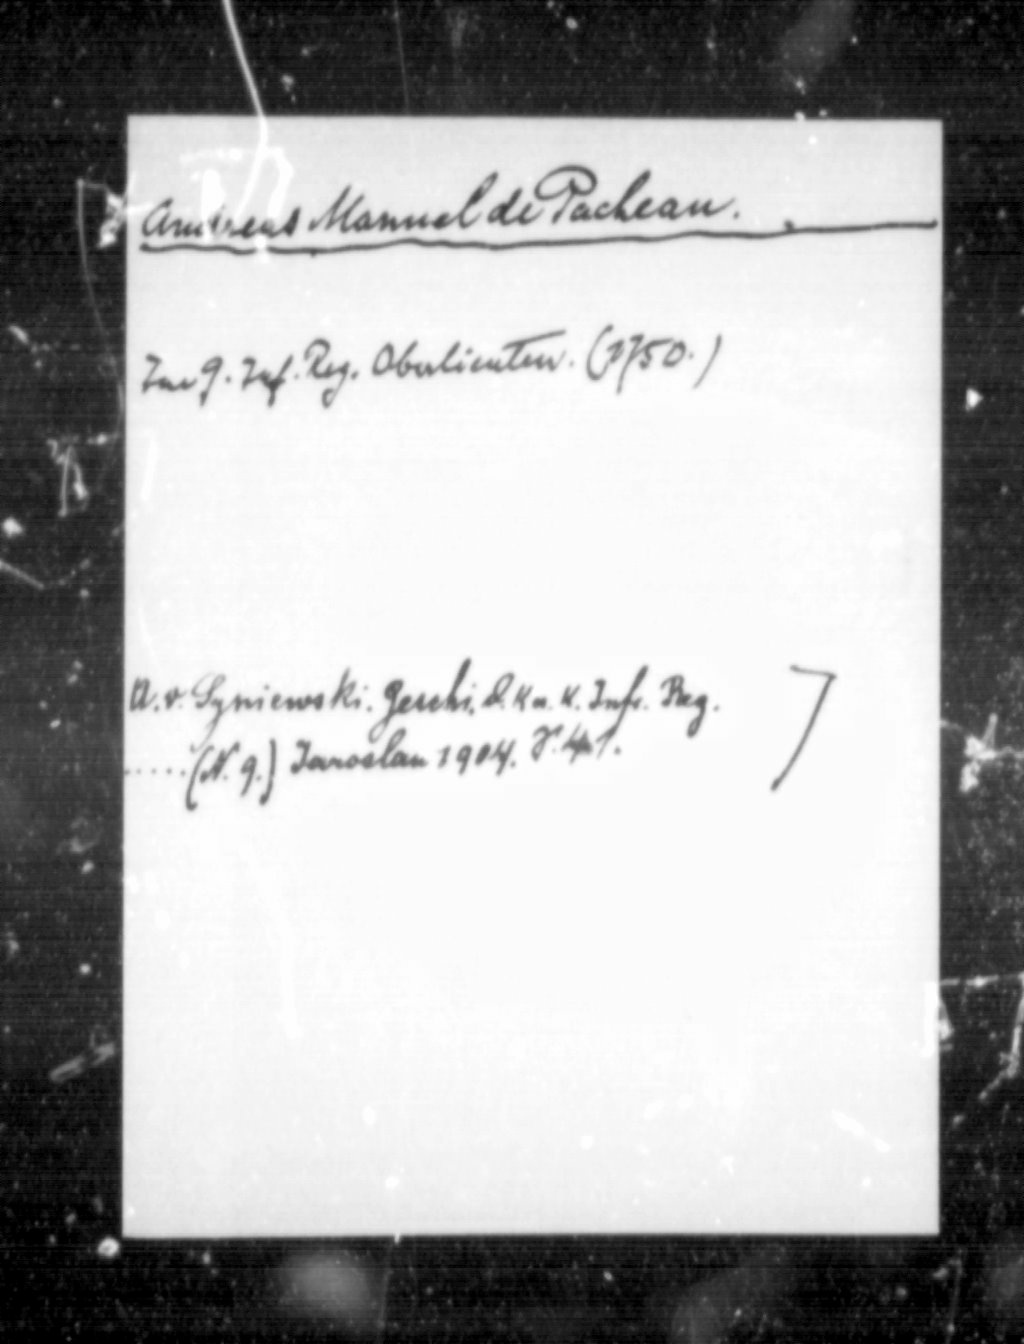 Andreas Manuel de Pacheau.
Im 9. Inf. Reg. Oberlieuten. (1750.)
A. v. Syniewski. Geschi. d. K u. K. Inft. Reg.
.....(N. 9.) Jaroslau 1904. S. 41.